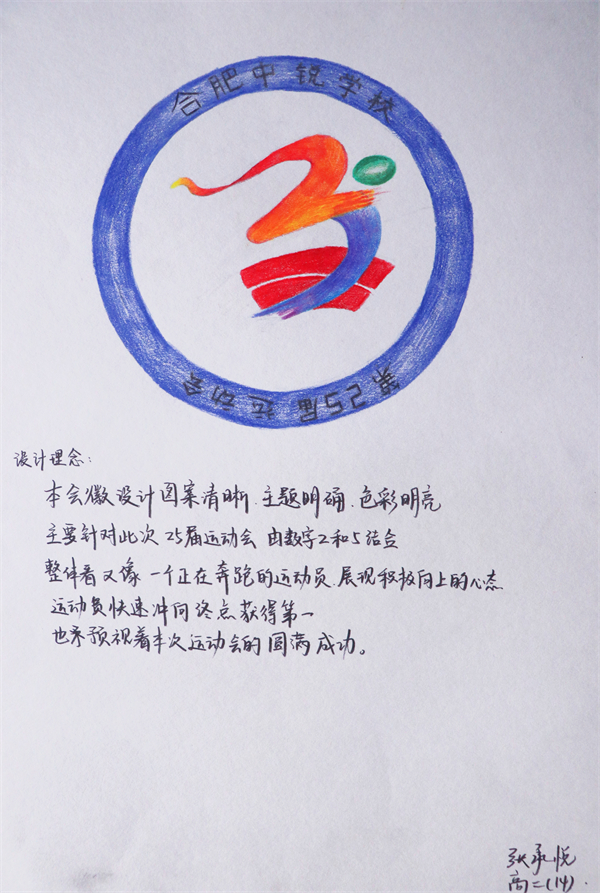 合肥中锐学校
第25届运动会
设计理念:
本会徽设计图案清晰.主题明确.色彩明亮
主要针对此次25届运动会 由数字2和5结合
整体看又像一个正在奔跑的运动员.展现积极向上的心态
运动员快速冲向终点获得第一
也予预视着本次运动会的圆满成功。
张承悦
高二(14).